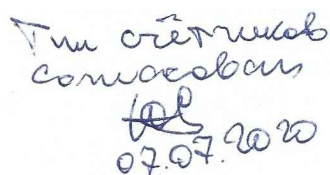 Тип счётчиков
согласован
07.07.2020